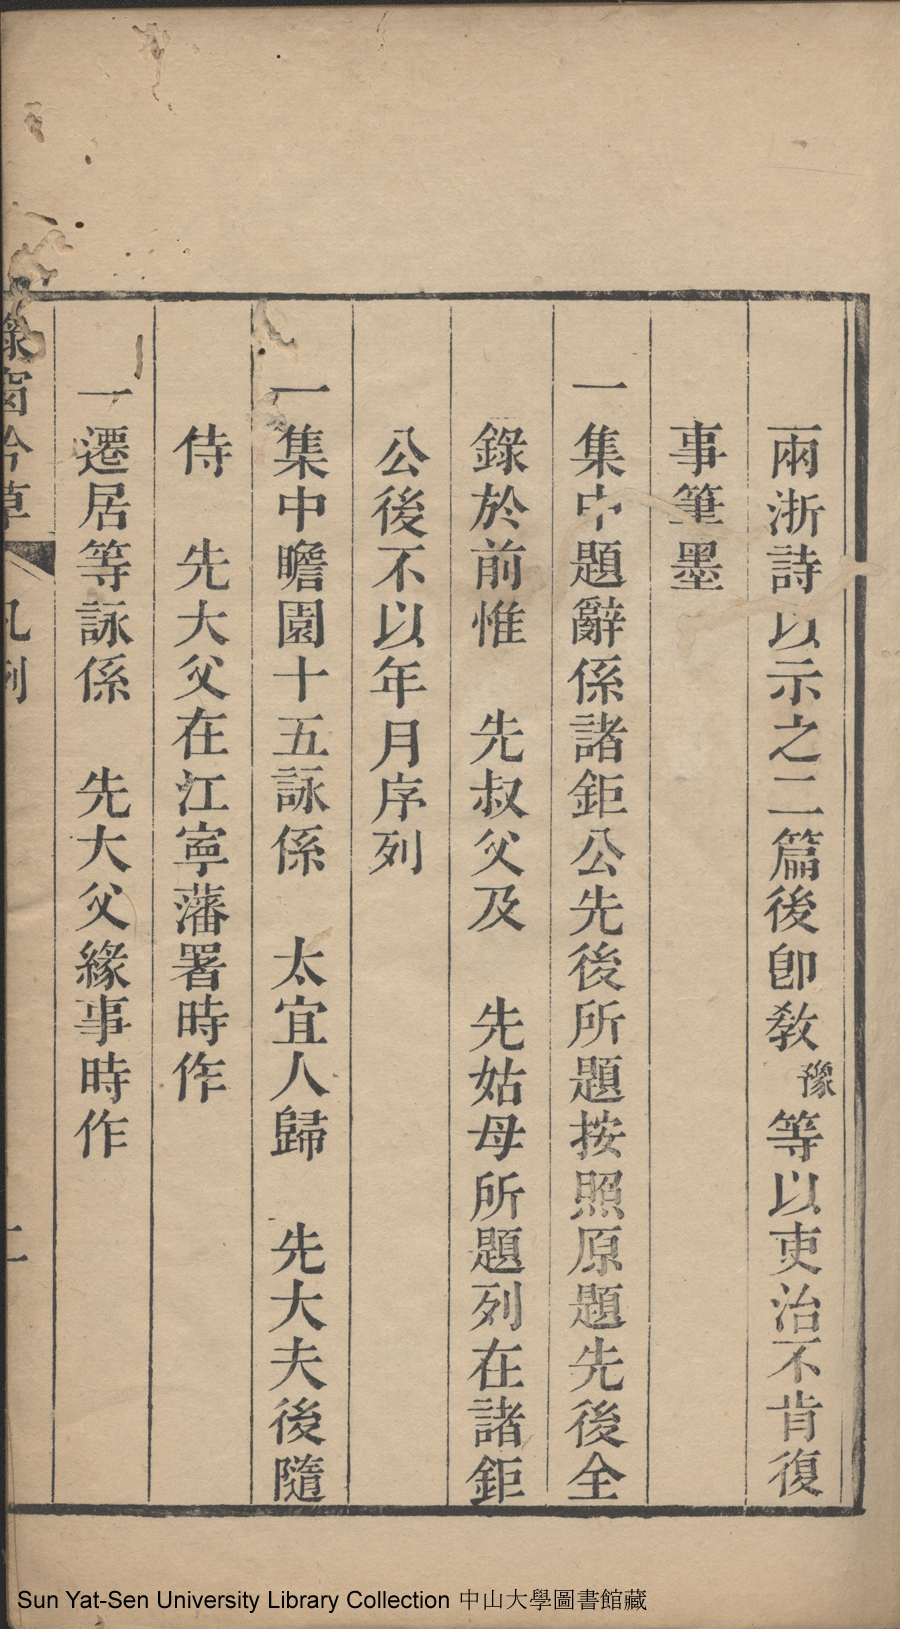 兩浙詩以示之二篇後卽敎豫等以吏治不肯復
事筆墨
一集中題辭係諸鉅公先後所題按照原題先後全
錄於前惟　先叔父及　先姑母所題列在諸鉅
公後不以年月序列
一集中瞻園十五詠係　太宜人歸　先大夫後隨
侍　先大父在江寧藩署時作
一遷居等詠係　先大父緣事時作
凡例
二
Sun Yat-Sen University Library Collection 中山大學圖書館藏